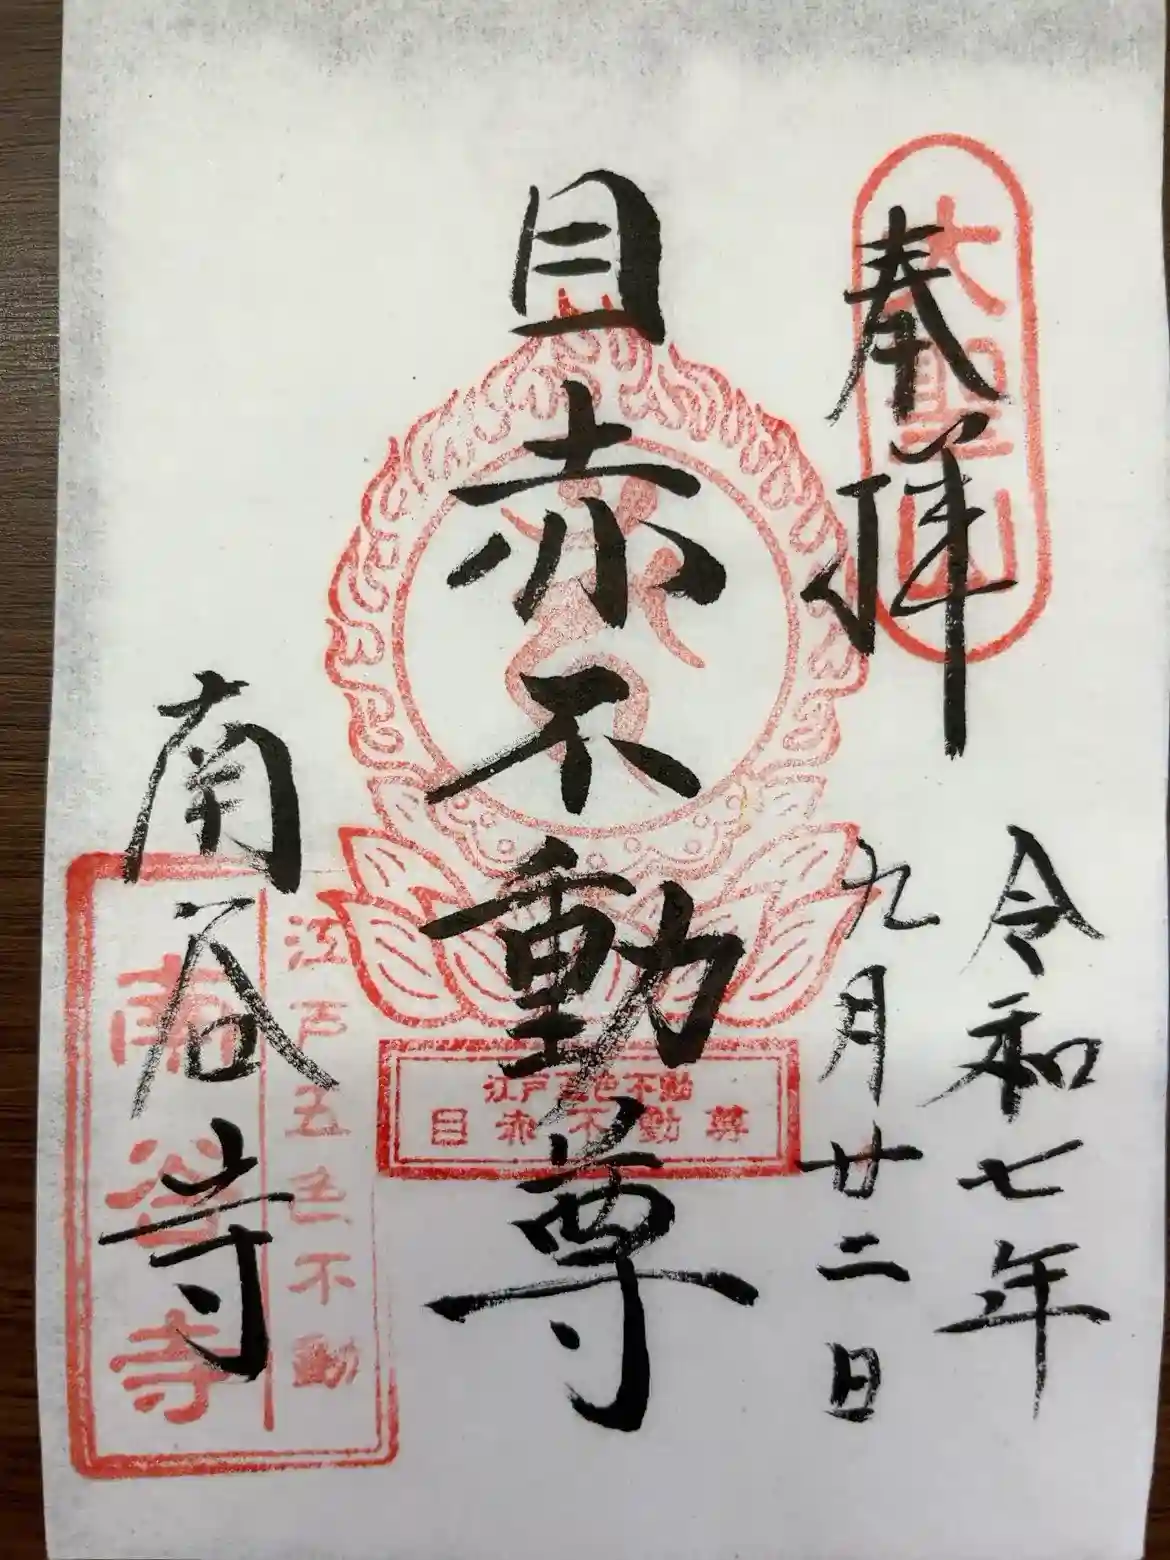 奉拝
大聖山
令和七年
九月廿二日
目赤不動尊
江戸五色不動
目赤不動尊
南谷寺
江戸五色不動
南谷寺